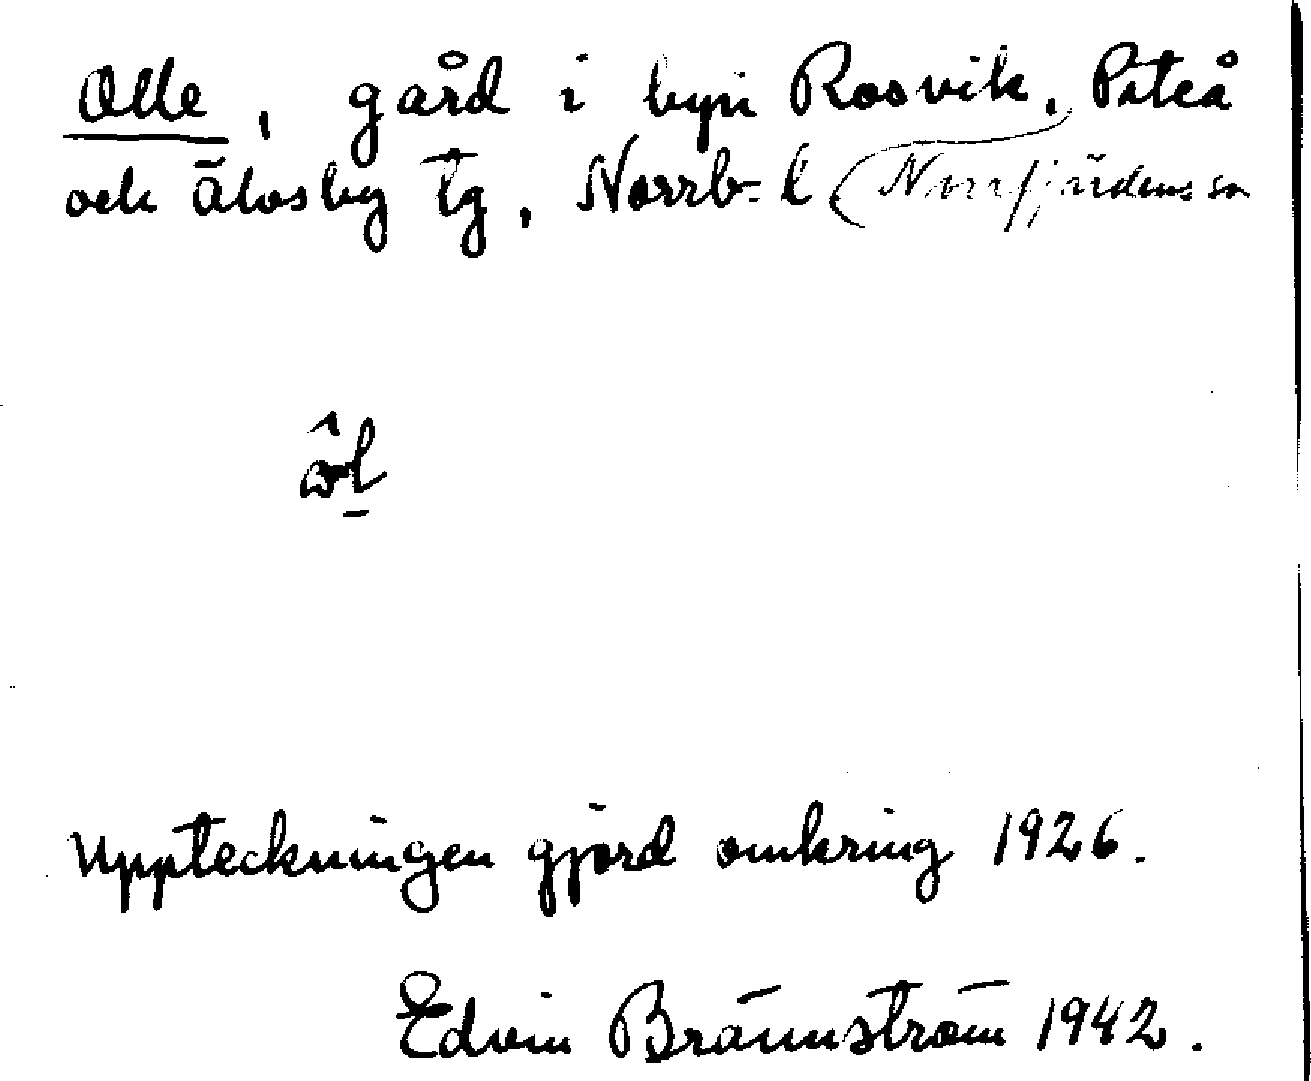 Olle, gård i byn Rosvik, Piteå
och Älvsby tg, Norrb. l (Norrfjärdens sn
Uppteckningen gjord omkring 1926.
Edvin Brännström 1942.